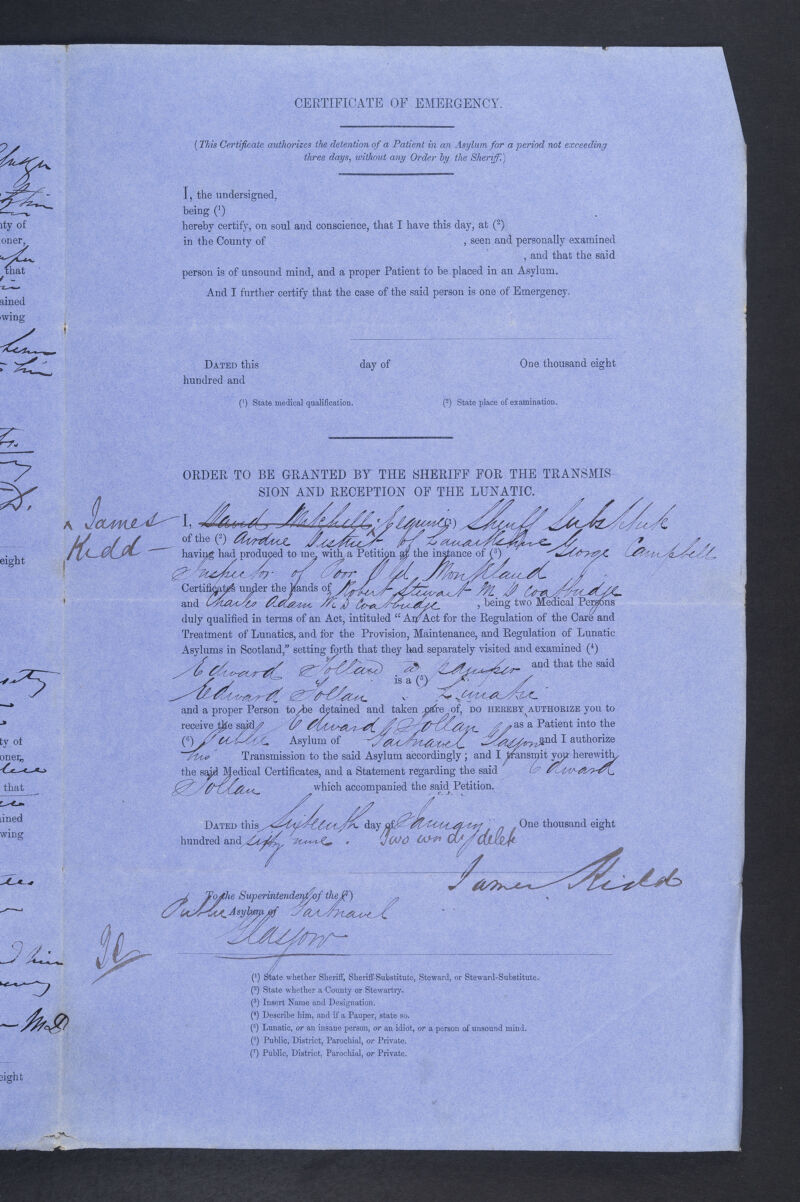 CERTIFICATE OF EMERGENCY.
(This Certificate authorizes the detention of a Patient in an Asylum for a period not exceeding
three days, without any Order by the Sheriff.)
I, the undersigned,
being (¹)
hereby certify, on soul and conscience, that I have this day, at (²)
in the County of , seen and personally examined
, and that the said
person is of unsound mind, and a proper Patient to be placed in an Asylum.
And I further certify that the case of the said person is one of Emergency.
DATED this day of One thousand eight
hundred and
(¹) State medical qualification. (²) State place of examination.
ORDER TO BE GRANTED BY THE SHERIFF FOR THE TRANSMIS-
SION AND RECEPTION OF THE LUNATIC.
James
Kidd
I, David Mitchell Esquire (¹) Sheriff Substitute
of the (²) Airdrie District of Lanarkshire
having had produced to me, with a Petition at the instance of (³) George Campbell
Inspector of Poor Old Monkland
Certificates under the hands of Robert Stewart M D Coatbridge
and Charles Adam M D Coatbridge , being two Medical Persons
duly qualified in terms of an Act, intituled "An Act for the Regulation of the Care and
Treatment of Lunatics, and for the Provision, Maintenance, and Regulation of Lunatic
Asylums in Scotland," setting forth that they had separately visited and examined (⁴)
Edward Tollan a pauper and that the said
Edward Tollan is a (⁵) Lunatic
and a proper Person to be detained and taken care of, DO HEREBY AUTHORIZE you to
receive the said Edward Tollan as a Patient into the
(⁶) Public Asylum of Gartnavel Glasgow and I authorize
his Transmission to the said Asylum accordingly; and I transmit you herewith
the said Medical Certificates, and a Statement regarding the said Edward
Tollan which accompanied the said Petition.
DATED this Sixteenth day of January One thousand eight
hundred and sixty nine. Two words delete
James Kidd
To the Superintendent of the (⁷)
Public Asylum of Gartnavel
Glasgow
(¹) State whether Sheriff, Sheriff-Substitute, Steward, or Steward-Substitute.
(²) State whether a County or Stewartry.
(³) Insert Name and Designation.
(⁴) Describe him, and if a Pauper, state so.
(⁵) Lunatic, or an insane person, or an idiot, or a person of unsound mind.
(⁶) Public, District, Parochial, or Private.
(⁷) Public, District, Parochial, or Private.